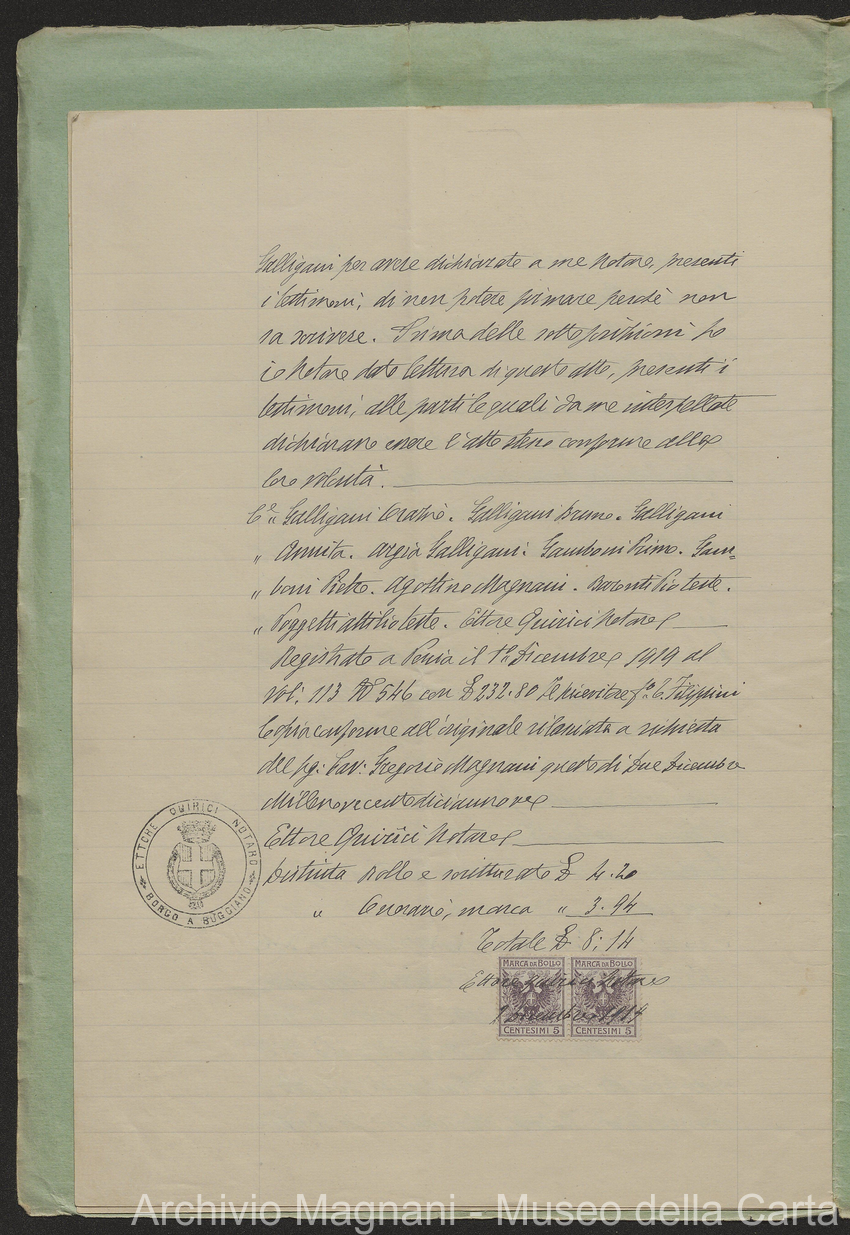 Galligani per avere dichiarato a me Notaro, presenti
i testimoni, di non potere firmare perchè non
sa scrivere. Prima delle sottoscrizioni ho
io Notaro dato lettura di questo atto, presenti i
testimoni, alle parti le quali da me interpellate
dichiarano essere l'atto stesso conforme alla
loro volontà.
Galligani Orazio. Galligani Bruno. Galligani
„ Annita. Argia Galligani. Gamboni Primo. Gam=
„ boni Pietro. Agostino Magnani. Pio teste.
„ Poggetti Attilio teste. Ettore Quirici Notaro
Registrato a Pescia il 1° Dicembre 1919 al
Vol: 113 N° 546 con £ 232.80 Il Ricevitore fo C. Filippini
Copia conforme all'originale rilasciata a richiesta
del Sig: Cav: Gregorio Magnani questo dì Due Dicembre
Millenovecentodiciannove
Ettore Quirici Notaro
Distinta Bollo e scritturato £ 4.20
„ Onorario, marca „ 3.94
Totale £ 8:14
ETTORE QUIRICI NOTARO
BORGO A BUGGIANO
MARCA DA BOLLO MARCA DA BOLLO
Ettore Quirici Notaro
CENTESIMI 5 CENTESIMI 5
Archivio Magnani - Museo della Carta